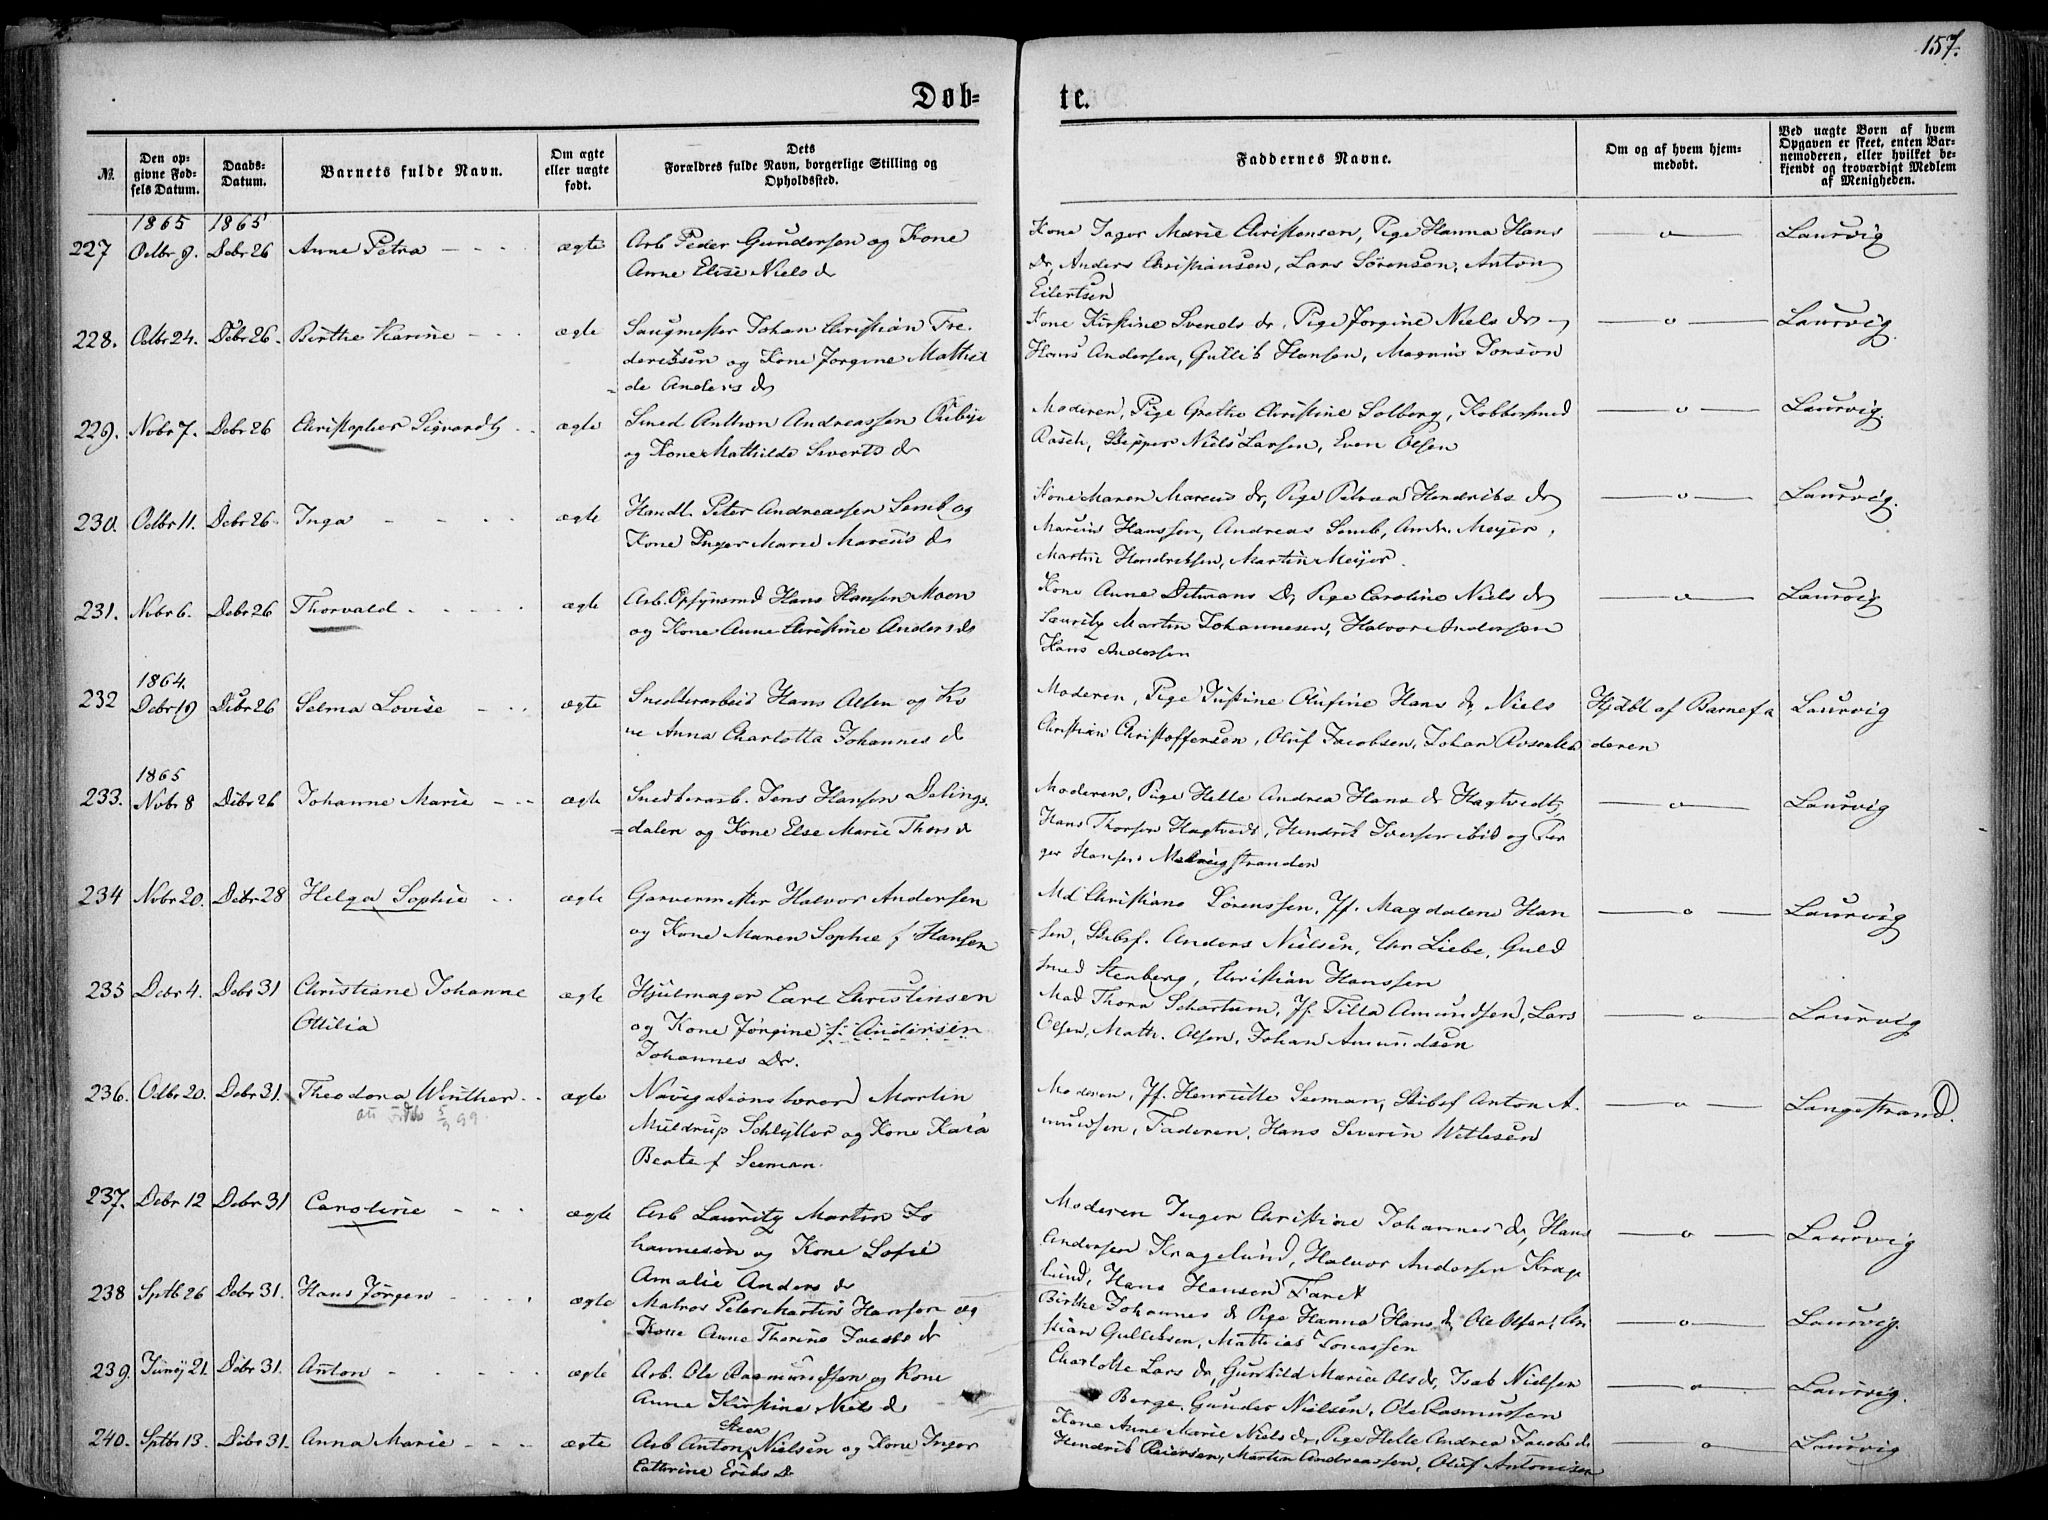 157.
Døb-
te.
№.
Den op-
givne Fød-
sels Datum.
Daabs-
Datum.
Barnets fulde Navn.
Om ægte
eller uægte
født.
Dets
Forældres fulde Navn, borgerlige Stilling og
Opholdssted.
Faddernes Navne.
Om og af hvem hjem-
medøbt.
Ved uægte Børn af hvem
Opgaven er skeet, enten Bar-
nemoderen, eller hvilket be-
kjendt og troværdigt Medlem
af Menigheden.
1865 1865
227 Octbr 9. Debr 26 Anne Petra - - - ægte Arb Peder Gundersen og Kone
Anne Elise Niels d
Kone Inger Marie Christensen, Pige Hanna Hans
Dr, Anders Christiansen, Lars Sørensen, Anton
Eilertsen
—o— Laurvig
228. Octbr 24. Debr 26. Birthe Karine - - ægte Saugmester Johan Christian Fre-
deriksen og Kone Jørgine Mathil
=de Anders d
Kone Kirstine Svends dr, Pige Jørgine Niels dr
Hans Andersen, Gullik Hansen, Magnus Jonson
—o— Laurvig.
229. Nobr 7. Debr 26 Christopher Sigvardt - - ægte Smed Anthon Andreassen
og Kone Mathilde Siverts d
Moderen, Pige Grethe Christine Solberg, Kobbersmed
Rasch, Skipper Niels Larsen, Even Olsen
—o— Laurvig.
230. Octbr 11. Debr 26. Inga - - - - ægte Handl. Peter Andreassen Semb og
Kone Inger Marie Marcus d
Kone Maren Marcus dr, Pige Petrea Hendriks d
Marcus Hanssen, Andreas Semb, Andr. Meyer,
Martin Hendriksen, Martin Meyer.
—o— Laurvig.
231. Nobr 6. Debr 26 Thorvald - - - - - ægte Arb. Opsynsmd Hans Hansen Moen
og Kone Anne Christine Anders d
Kone Anne Ditmans D, Pige Caroline Niels d
Lauritz Martin Johannesen, Halvor Andersen
Hans Andersen
—o— Laurvig
1864.
232 Debr 19 Debr 26 Selma Lovise - - - ægte Snedkerarbeid Hans Olsen og Ko
ne Anna Charlotta Johannes d
Moderen, Pige Justine Olufine Hans d, Niels
Christian Christoffersen, Oluf Jacobsen, Johan
Hjdbt af Barnefa
deren
Laurvig
1865
233. Nobr 8 Debr 26 Johanne Marie - - - ægte Snedkerarb. Jens Hansen Delings
=dalen og Kone Else Marie Thors d
Moderen, Pige Helle Andrea Hans dr Hagtvedt,
Hans Thorsen Hagtvedt, Hendrik Iversen ibid og Per
ger Hansen
—o— Laurvig
234 Nobr 20. Debr 28 Helga Sophie - - ægte Garvermester Halvor Andersen
og Kone Maren Sophie f Hansen
Md Christiane Sørenssen, Jf. Magdalene Han
=sen, Skibsf. Anders Nielsen, Chr Liebe, Guld
smed Stenberg, Christian Hanssen
—o— Laurvig
235 Debr 4. Debr 31 Christiane Johanne
Ottilia
ægte Hjulmager Carl Christinsen
og Kone Jørgine f. Andersen
Johannes Dr.
Mad Thora Schartum, Jf. Tilla Amundsen, Lars
Olsen, Math. Olsen, Johan Amundsen
—o— Laurvig
236. Octbr 20. Debr 31. Theodora Winther - - ægte Navigationslærer Martin
5/3 99.
Muldrup Schlytter og Kone Kaia
Beate f Seeman.
Moderen, Jf. Henriette Seeman, Skibsf Anton A.
mundsen, Faderen, Hans Severin Wetlesen
—o— Langestrand.
237. Debr 12 Debr 31 Caroline - - - ægte Arb Lauritz Martin Jo
hannesen og Kone Sofie
Amalie Anders d
Moderen Inger Christine Johannes dr, Hans
Andersen Kragelund, Halvor Andersen Krage
lund, Hans Hansen
—o— Laurvig
238 Sptb 26 Debr 31. Hans Jørgen - - - - ægte Matros Peter Martin Hansen og
Kone Anne Thorine Jacobs d
Birthe Johannes d Pige Hanna Hans d, Ole Olsen, Kri
stian Gulliksen, Mathias Jonassen
—o— Laurvig.
239. Junij 21. Debr 31. Anton - - - - - ægte Arb. Ole Rasmundsen og Kone
Anne Kirstine Niels d
Charlotte Lars dr, Gunhild Marie Ols dr, Isak Nielsen
Berge, Gunder Nielsen, Ole Rasmussen
—o— Laurvig.
240. Sptbr 13. Debr 31. Anna Marie - - - ægte Arb Anton Nielsen og Kone Inger
Cathrine Eriks D
Kone Anne Marie Niels dr, Pige Helle Andrea Jacobs d
Hendrik Reiersen, Martin Andreassen, Oluf Antonisen
—o— Laurvig